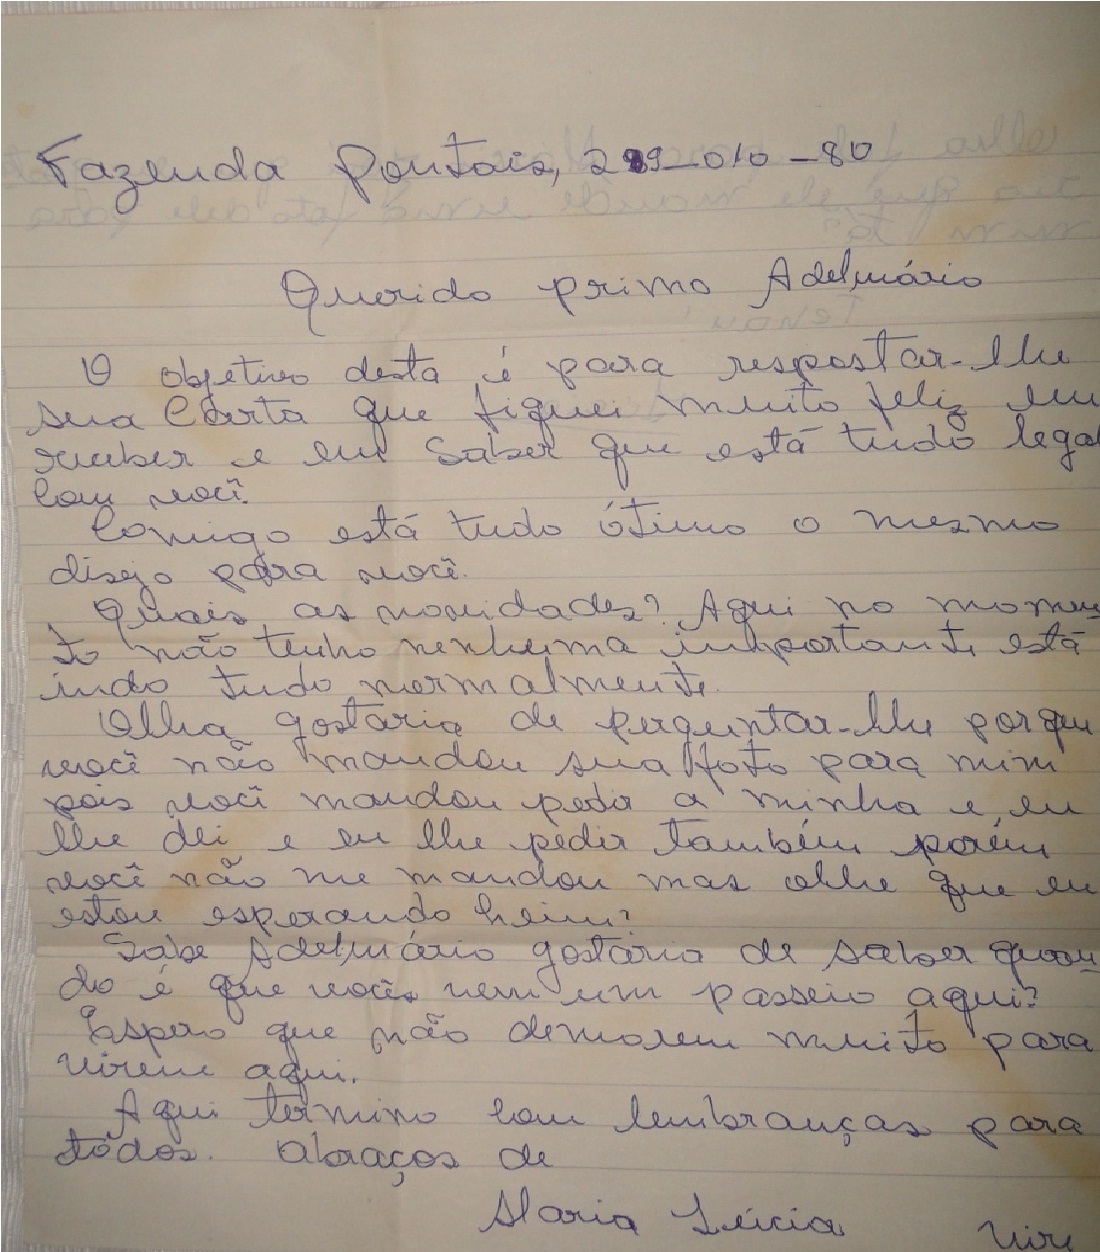 Fazenda Pontais, 29-010-80
Querido primo Adelmário
O objetivo desta é para respostar-lhe
sua Carta que fiquei muito feliz em
receber e em Saber que está tudo legal
com você.
Comigo está tudo ótimo o mesmo
disejo para você.
Quais as novidades? Aqui no momen
to não tenho nenhuma importante está
indo tudo normalmente.
Olha gostaria de perguntar-lhe porque
você não mandou sua foto para mim
pois você mandou pedir a minha e eu
lhe dei e eu lhe pedir também porém
você não me mandou mas olhe que eu
estou esperando heim?
Sabe Adelmário gostária de saber quan
do é que vocês vem um passeio aqui?
Espero que não demorem muito para
virem aqui.
Aqui termino com lembranças para
todos. Abraços de
Maria Lúcia
Vire